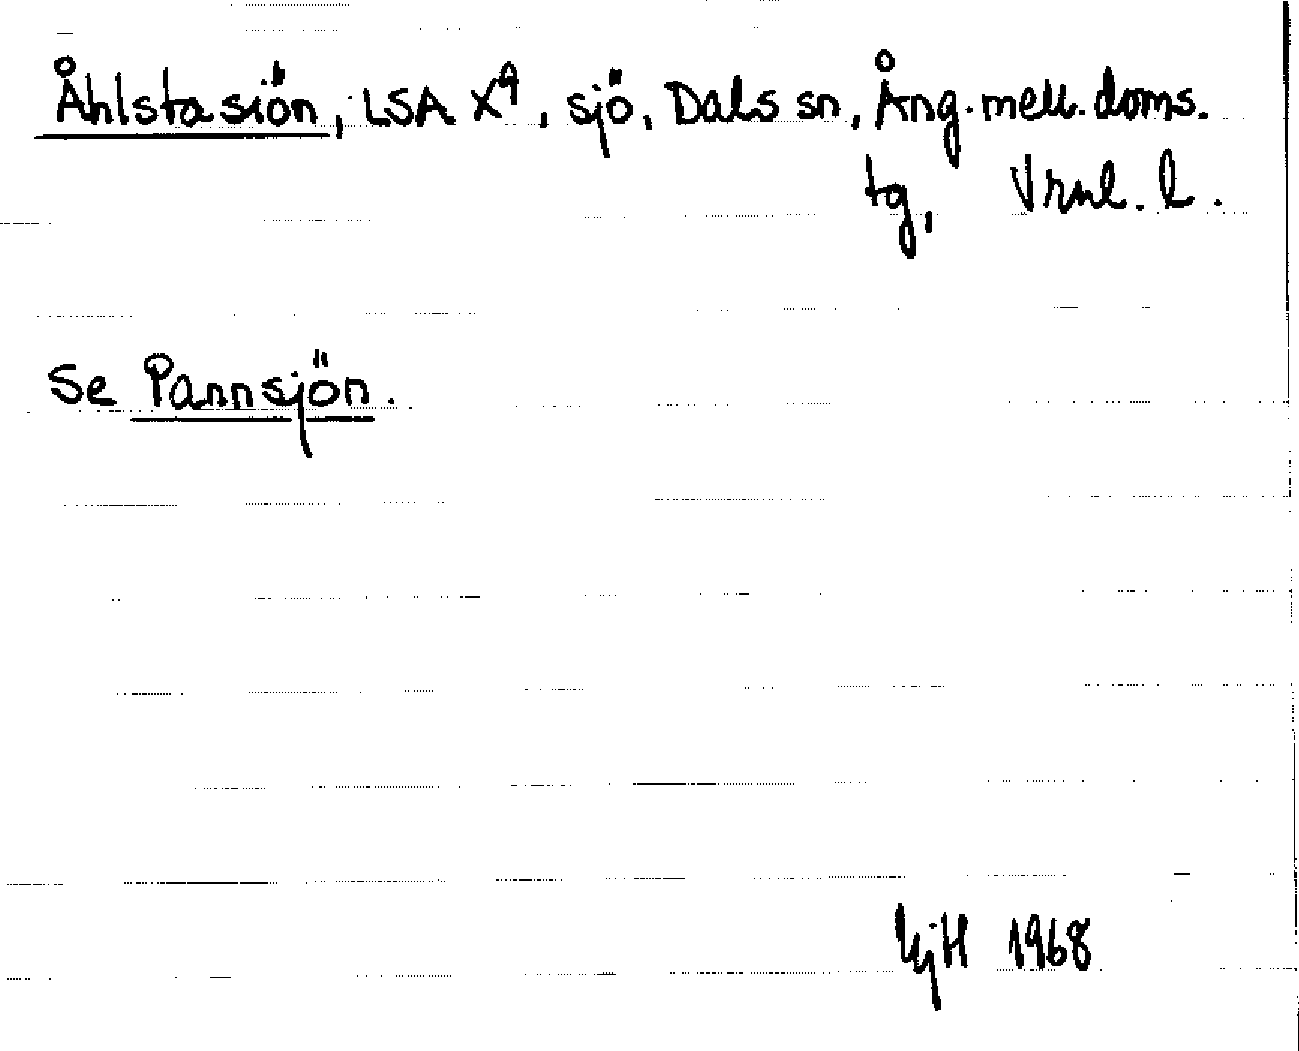 Åhlstasiön, LSA X9, sjö, Dals sn, Ång. mell. doms.
tg, Vrnl. l.
Se Pannsjön.
kjH 1968